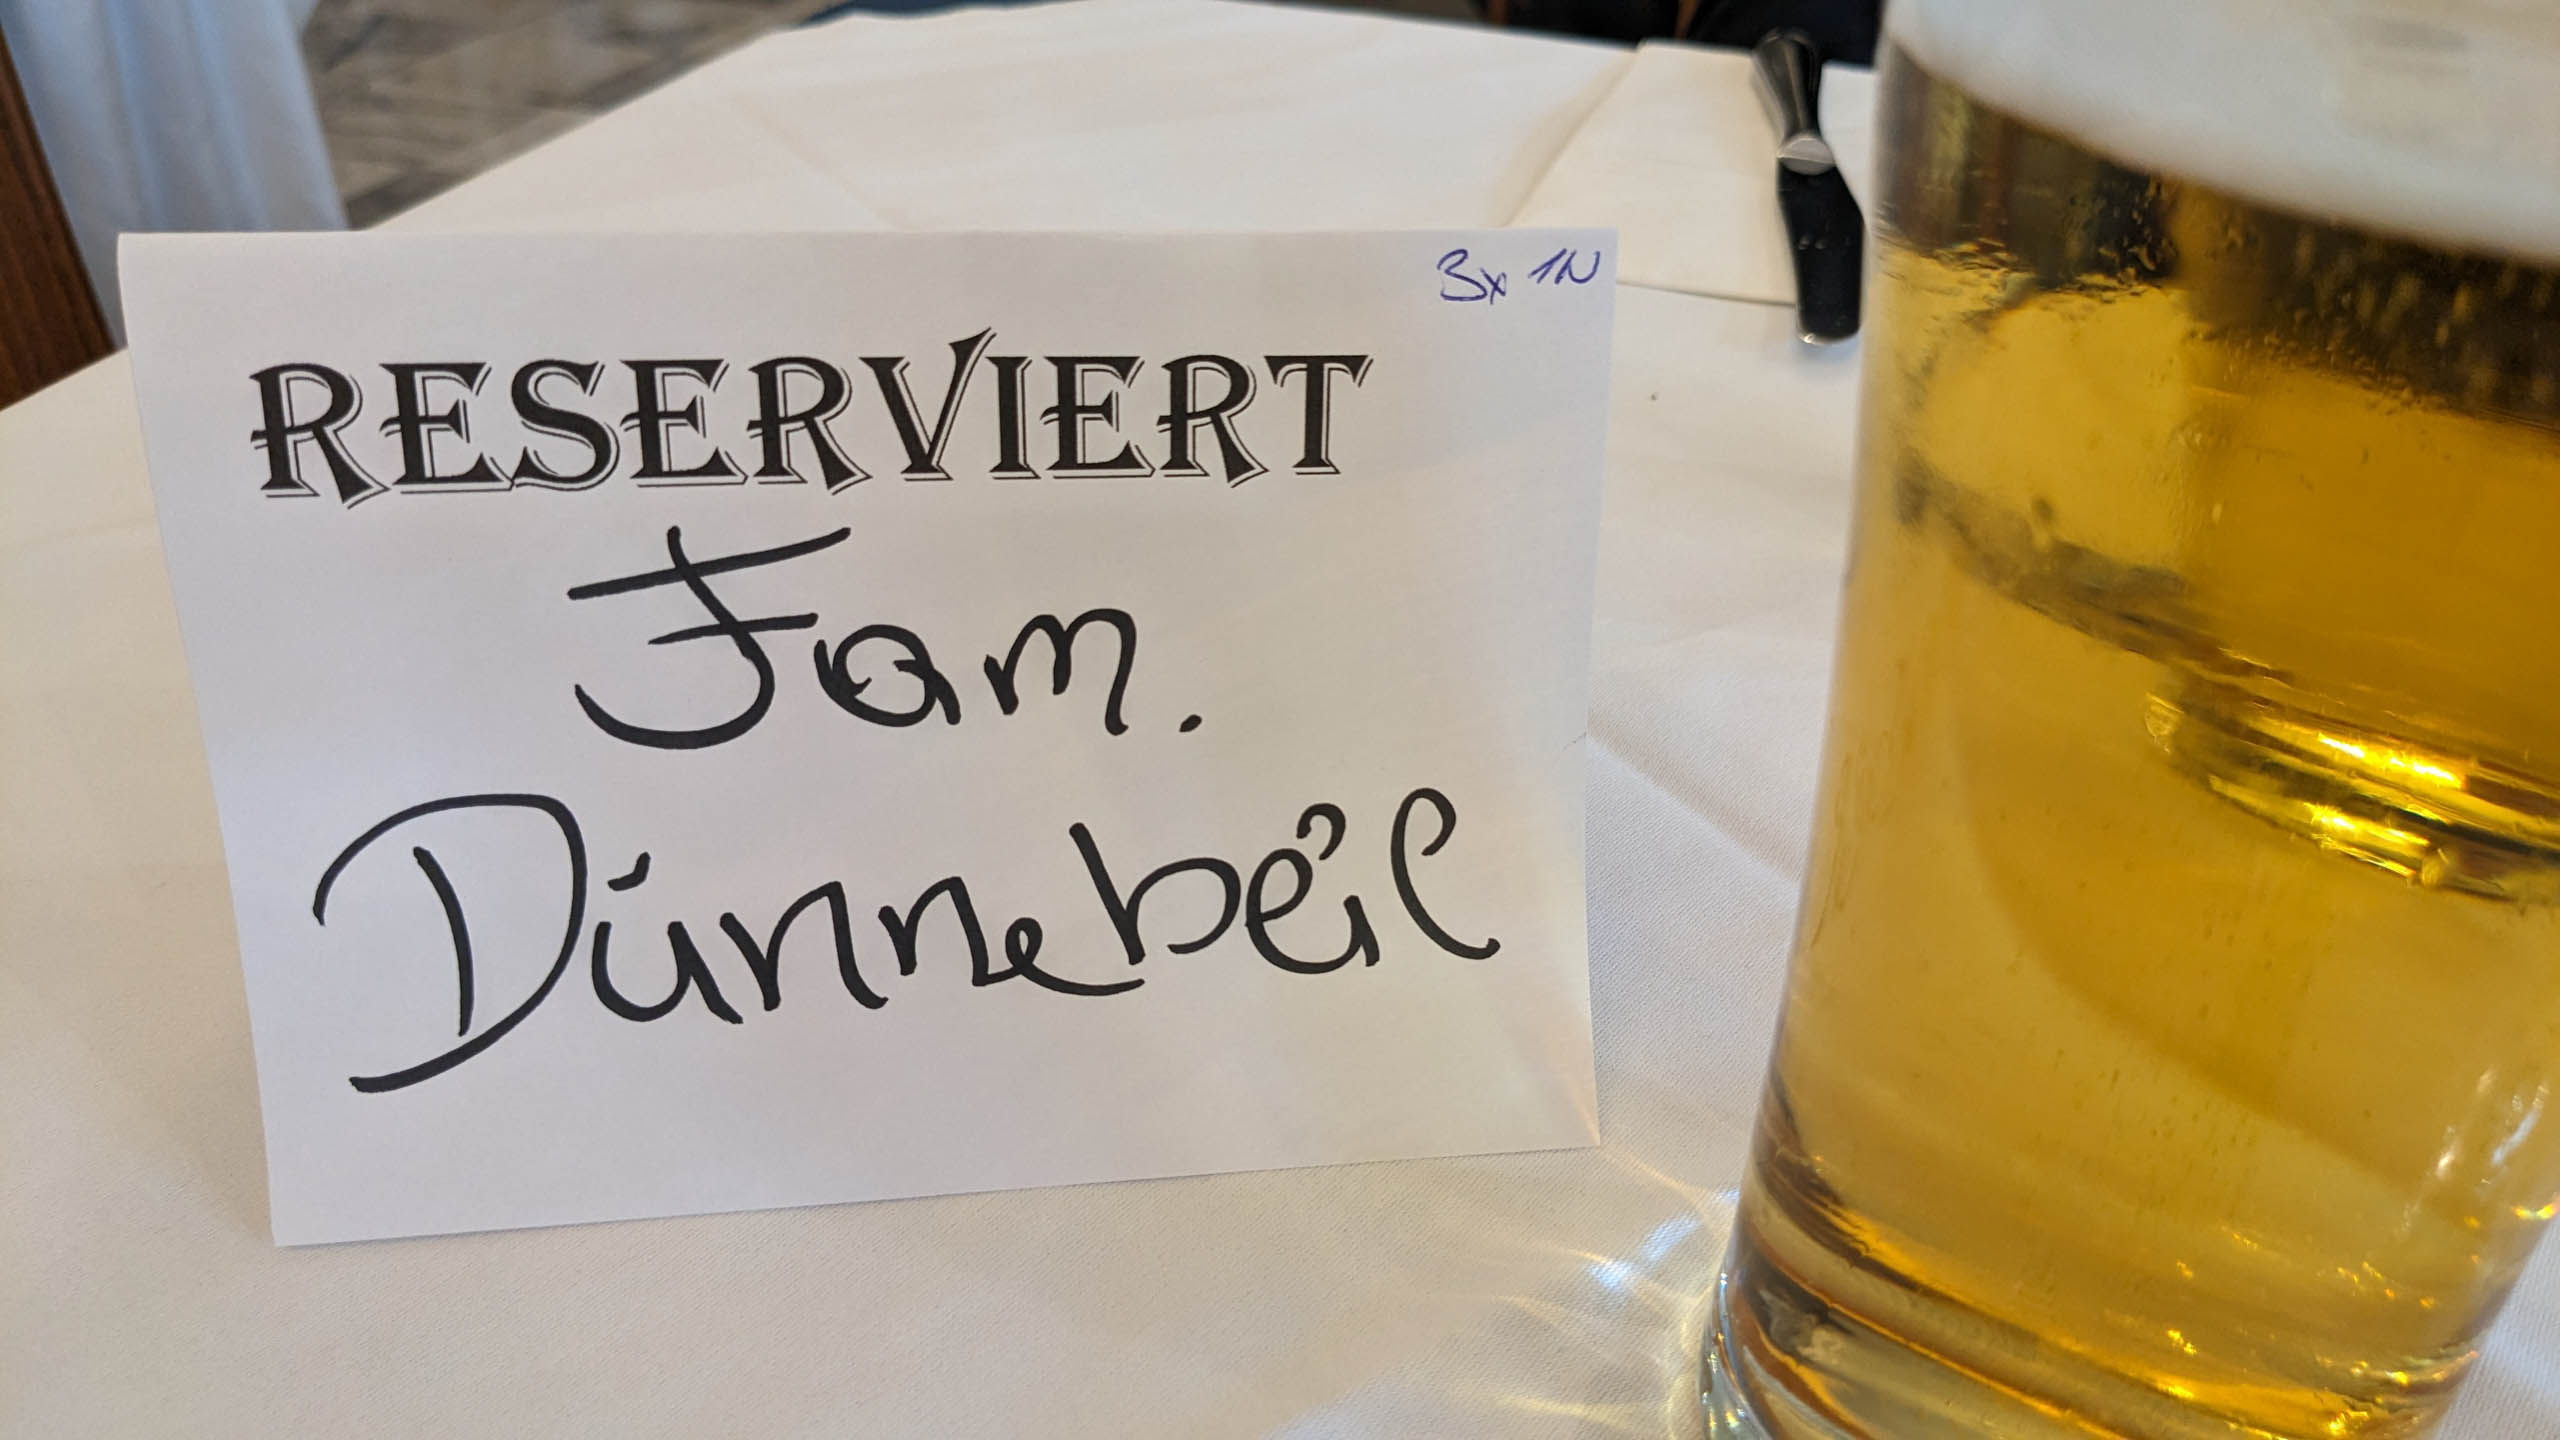 3x 1N
RESERVIERT
Fam.
Dünnebeil